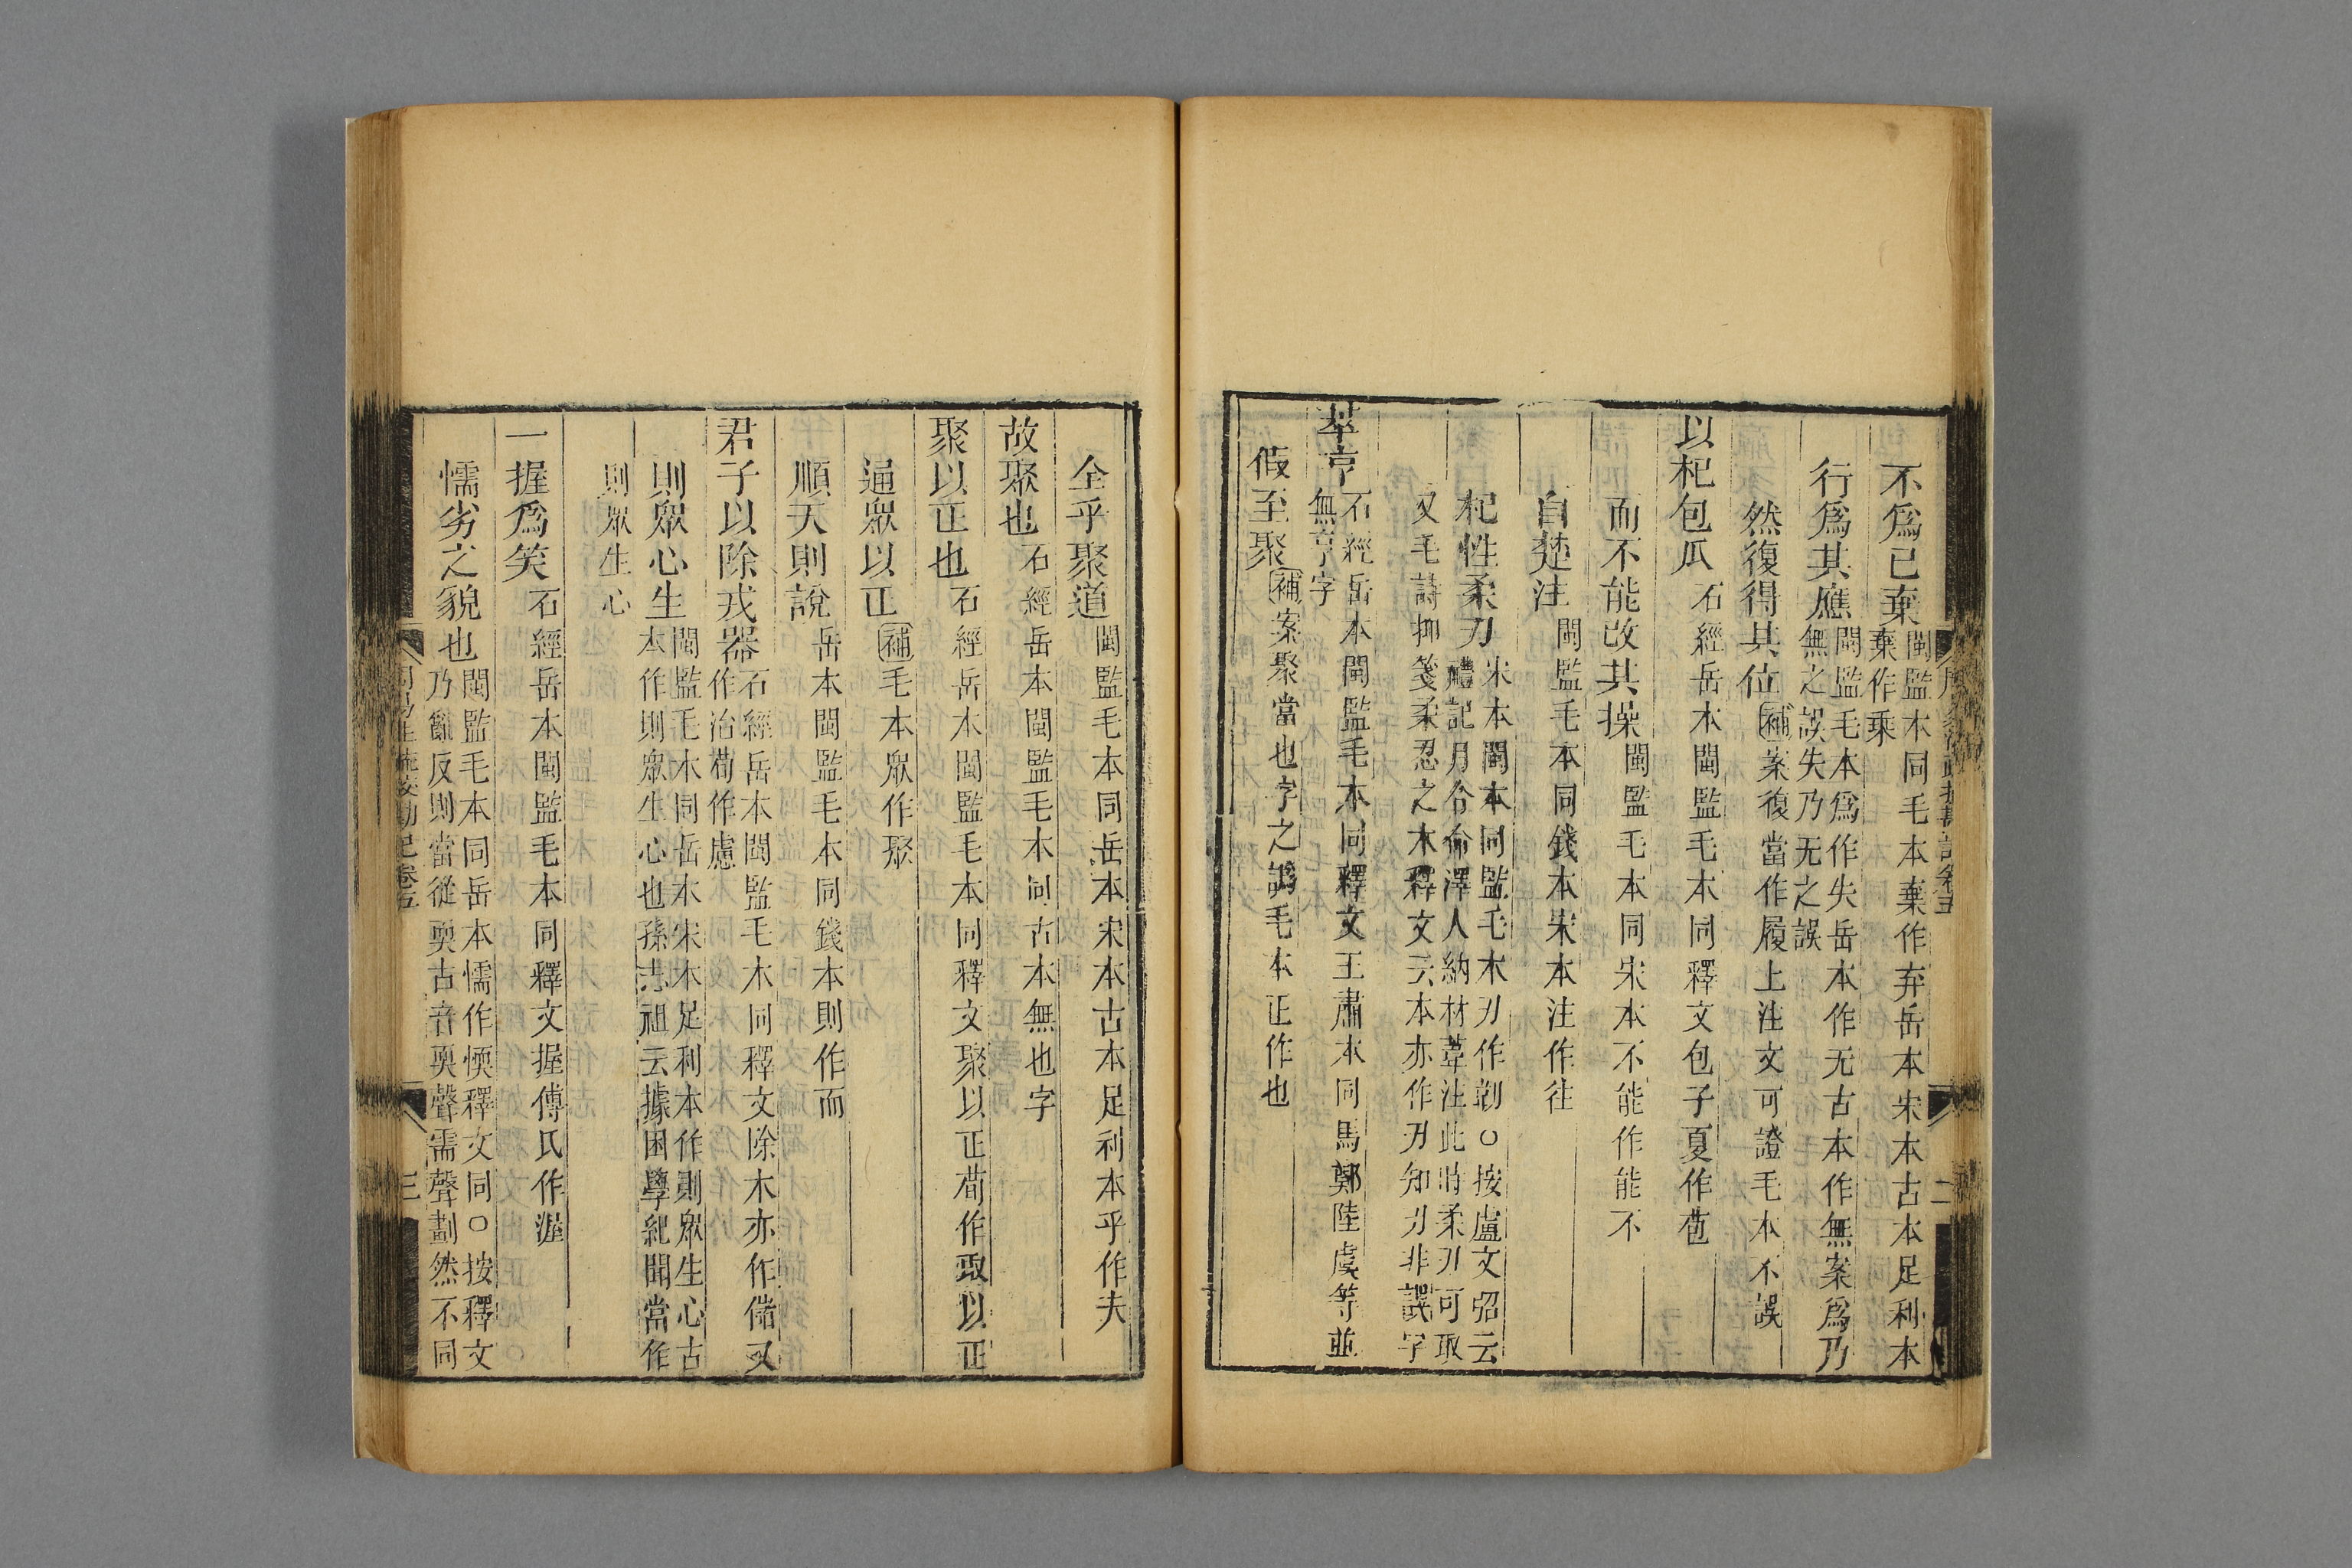 不爲已棄閩監本同毛本棄作弃岳本宋本古本足利本
棄作乗
行爲其應閩監毛本爲作失岳本作无古本作無案爲乃
無之誤失乃无之誤
然復得其位補案復當作履上注文可證毛本不誤
以杞包瓜石經岳本閩監毛本同釋文包子夏作苞
而不能改其操閩監毛本同宋本不能作能不
自楚注閩監毛本同錢本宋本注作往
杞性柔刃宋本閩本同監毛本刃作韌○按盧文弨云
禮記月令命澤人納材葦注此時柔刃可取
又毛詩抑箋柔忍之木釋文云本亦作刃知刃非誤字
萃亨石經岳本閩監毛本同釋文王肅本同馬鄭陸虞等並
無亨字
假至聚補案聚當也字之譌毛本正作也
全乎聚道閩監毛本同岳本宋本古本足利本乎作夫
故聚也石經岳本閩監毛本同古本無也字
聚以正也石經岳本閩監毛本同釋文聚以正荀作取以正
逼眾以正補毛本眾作聚
順天則說岳本閩監毛本同錢本則作而
君子以除戎器石經岳本閩監毛本同釋文除本亦作儲又
作治荀作慮
則眾心生閩監毛本同岳本宋本足利本作則眾生心古
本作則眾生心也孫志祖云據困學紀聞當作
則眾生心
一握爲笑石經岳本閩監毛本同釋文握傅氏作渥
懦劣之貌也閩監毛本同岳本懦作愞釋文同○按釋文
乃亂反則當從耎古音耎聲需聲劃然不同
三